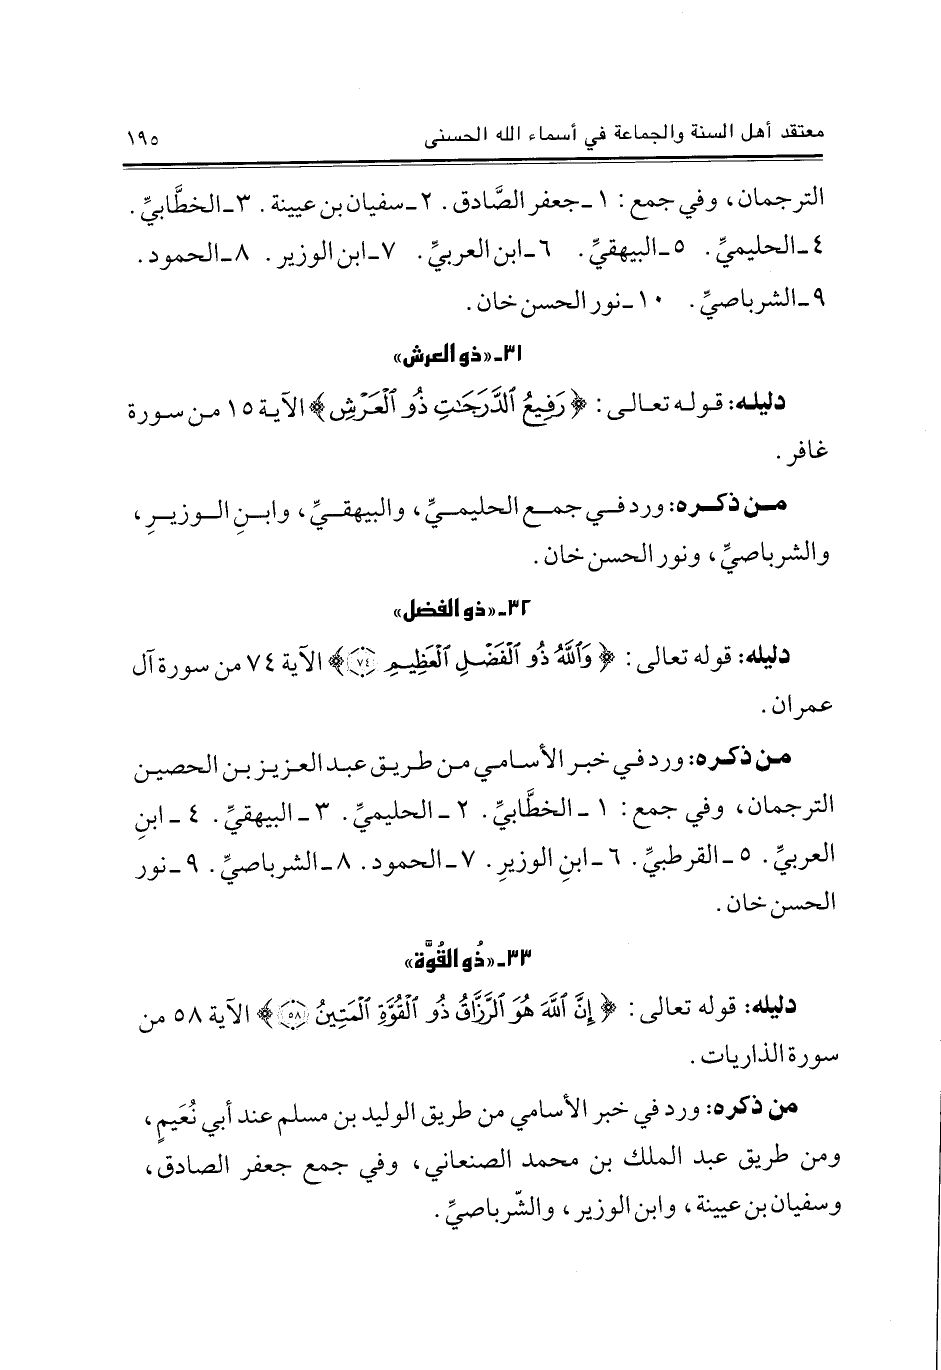 معتقد أهل السنة والجماعة في أسماء الله الحسنى ١٩٥
الترجمان، وفي جمع: ١ـ جعفر الصَّادق. ٢ـ سفيان بن عيينة. ٣ـ الخطَّابيِّ.
٤ـ الحليميِّ. ٥ـ البيهقيِّ. ٦ـ ابن العربيِّ. ٧ـ ابن الوزير. ٨ـ الحمود.
٩ـ الشرباصيِّ. ١٠ـ نور الحسن خان.
٣١ـ «ذو العرش»
دليله: قوله تعالى: ﴿ رَفِيعُ ٱلدَّرَجَٰتِ ذُو ٱلْعَرْشِ ﴾ الآية ١٥ من سورة
غافر.
من ذكره: ورد في جمع الحليميِّ، والبيهقيِّ، وابنِ الوزيرِ،
والشرباصيِّ، ونور الحسن خان.
٣٢ـ «ذو الفضل»
دليله: قوله تعالى: ﴿ وَٱللَّهُ ذُو ٱلْفَضْلِ ٱلْعَظِيمِ ٧٤ ﴾ الآية ٧٤ من سورة آل
عمران.
من ذكره: ورد في خبر الأسامي من طريق عبد العزيز بن الحصين
الترجمان، وفي جمع: ١ ـ الخطَّابيِّ. ٢ ـ الحليميِّ. ٣ ـ البيهقيِّ. ٤ ـ ابنِ
العربيِّ. ٥ ـ القرطبيِّ. ٦ ـ ابنِ الوزيرِ. ٧ ـ الحمود. ٨ ـ الشرباصيِّ. ٩ ـ نور
الحسن خان.
٣٣ـ «ذُو القُوَّة»
دليله: قوله تعالى: ﴿ إِنَّ ٱللَّهَ هُوَ ٱلرَّزَّاقُ ذُو ٱلْقُوَّةِ ٱلْمَتِينُ ٥٨ ﴾ الآية ٥٨ من
سورة الذاريات.
من ذكره: ورد في خبر الأسامي من طريق الوليد بن مسلم عند أبي نُعَيمٍ،
ومن طريق عبد الملك بن محمد الصنعاني، وفي جمع جعفر الصادق،
وسفيان بن عيينة، وابن الوزير، والشّرباصيِّ.